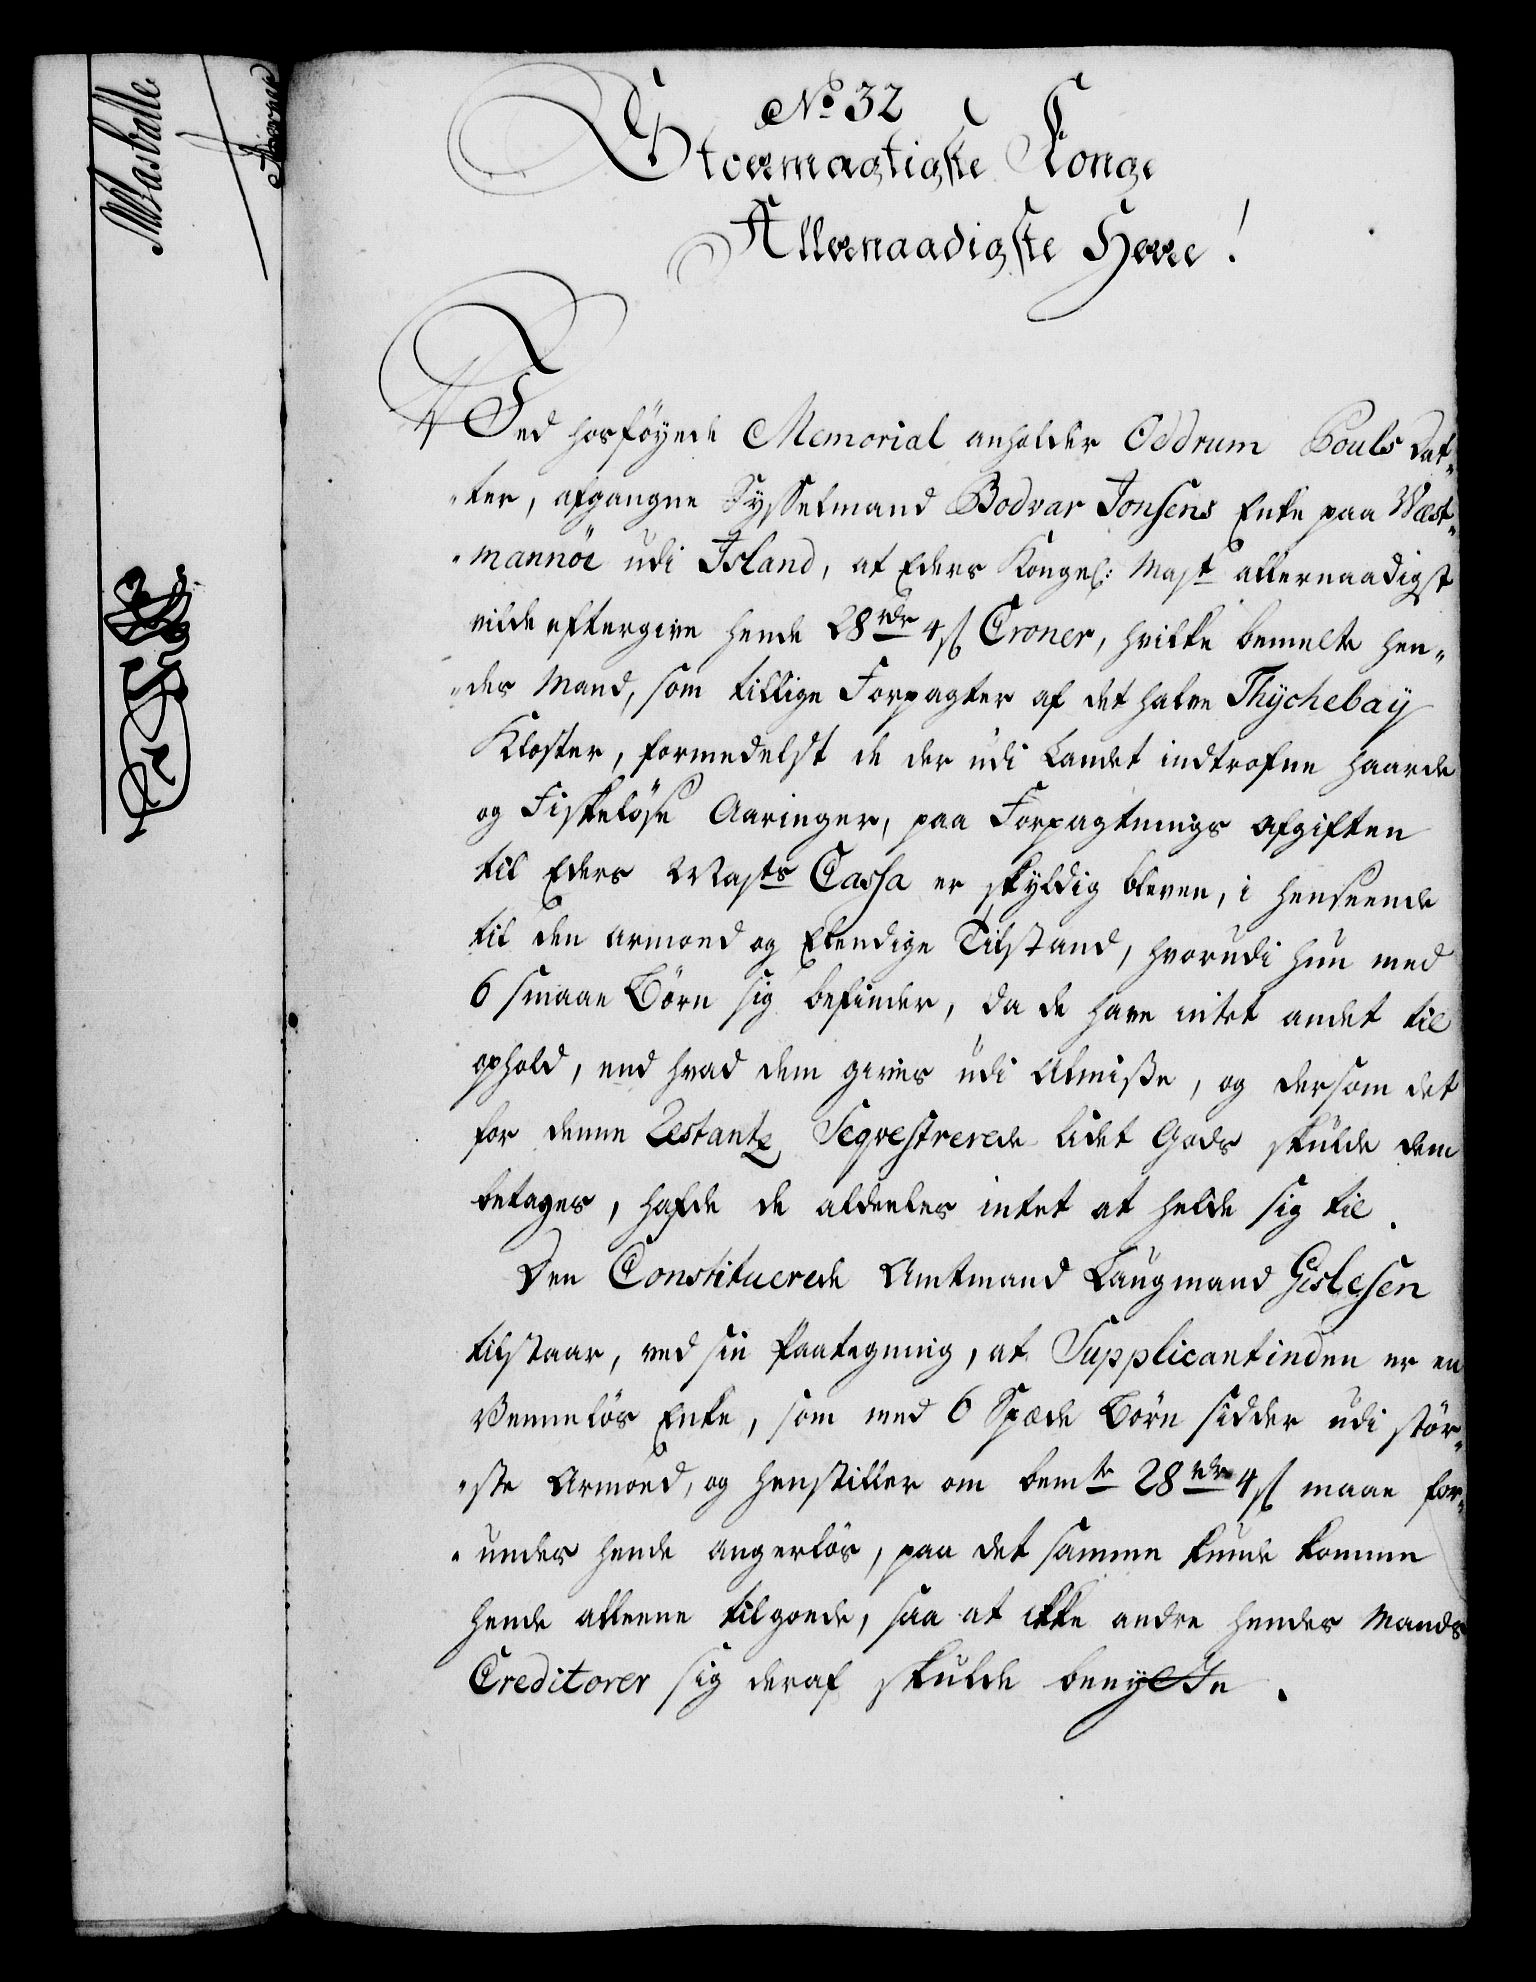 No 32
Stormægtigste Konge
Allernaadigste Herre!
Ved hosföyede Memorial anholder Oddrum Pouls Dat„
„ter, afgangne Sysselmand Bodvar Jonsens Enke paa West„
„mannöe udi Island, at Eders Kongel: Mayst allernaadigst
vilde eftergive hende 28 rdr 4 ß Croner, hvilke bemelte hen„
„des Mand, som tillige Forpagter af det halve Thychebay
Kloster, formedelst de der udi Landet indtrofne haarde
og Fiskelöse Aaringer, paa Forpagtnings Afgiften
til Eders Maysts Cassa er skyldig bleven, i henseende
til den armoed og Elendige Tilstand, hvorudi hun med
6 smaae Börn sig befinder, da de have intet andet til
ophold, end hvad dem gives udi Almisse, og dersom det
for denne Restantz Seqvestrerede lidet Gods skulde dem
betages, hafde de aldeeles intet at helde sig til.
Den Constituerede Amtmand Laugmand Gislesen
tilstaar, ved sin Paategning, at Supplicantinden er en
Venneløs Enke, som med 6 Spæde Börn sidder udi stör„
„ste Armoed, og henstiller om bemte 28 rdr 4 ß maae for„
„undes hende angerlös, paa det samme kunde komme
hende alleene tilgoede, saa at ikke andre hendes Mands
Creditorer sig deraf skulde benytte.